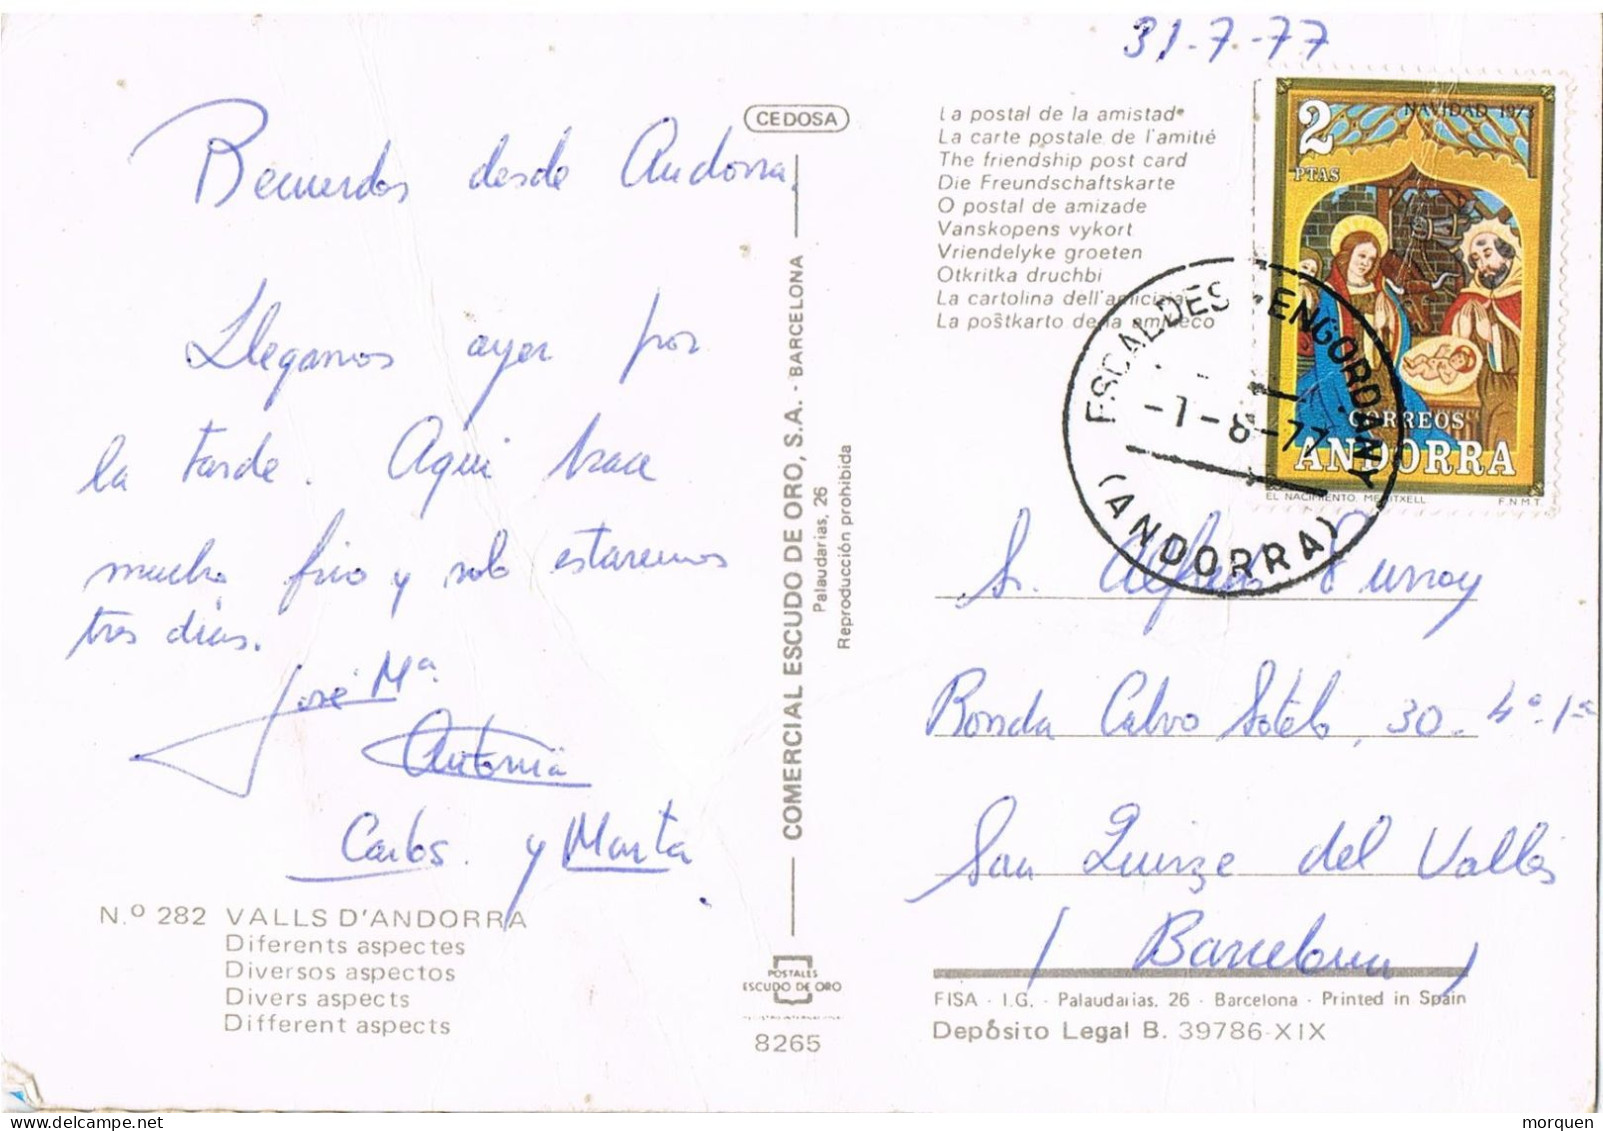 31-7-77
Recuerdos desde Andorra.
Llegamos ayer por
la tarde. Aqui hace
mucho frio y solo estaremos
tres dias.
José Mª
Antonia
Carlos y Marta.
N.º 282 VALLS D'ANDORRA
Diferents aspectes
Diversos aspectos
Divers aspects
Different aspects
CEDOSA
COMERCIAL ESCUDO DE ORO, S.A. - BARCELONA
Palaudarias, 26
Reproducción prohibida
POSTALES
ESCUDO DE ORO
8265
La postal de la amistad
La carte postale de l'amitié
The friendship post card
Die Freundschaftskarte
O postal de amizade
Vanskopens vykort
Vriendelyke groeten
Otkritka druchbi
La cartolina dell'amicizia
La poŝtkarto de la amikeco
2
PTAS
NAVIDAD 1973
CORREOS
ANDORRA
EL NACIMIENTO. MERITXELL F.N.M.T.
ESCALDES-ENGORDANY
-1-8-77
(ANDORRA)
Sr. Alfredo
Ronda Calvo Sotelo, 30-4º-1ª
San Quirze del Vallés
(Barcelona)
FISA - I.G. - Palaudarias, 26 - Barcelona - Printed in Spain
Depósito Legal B. 39786-XIX
morquen